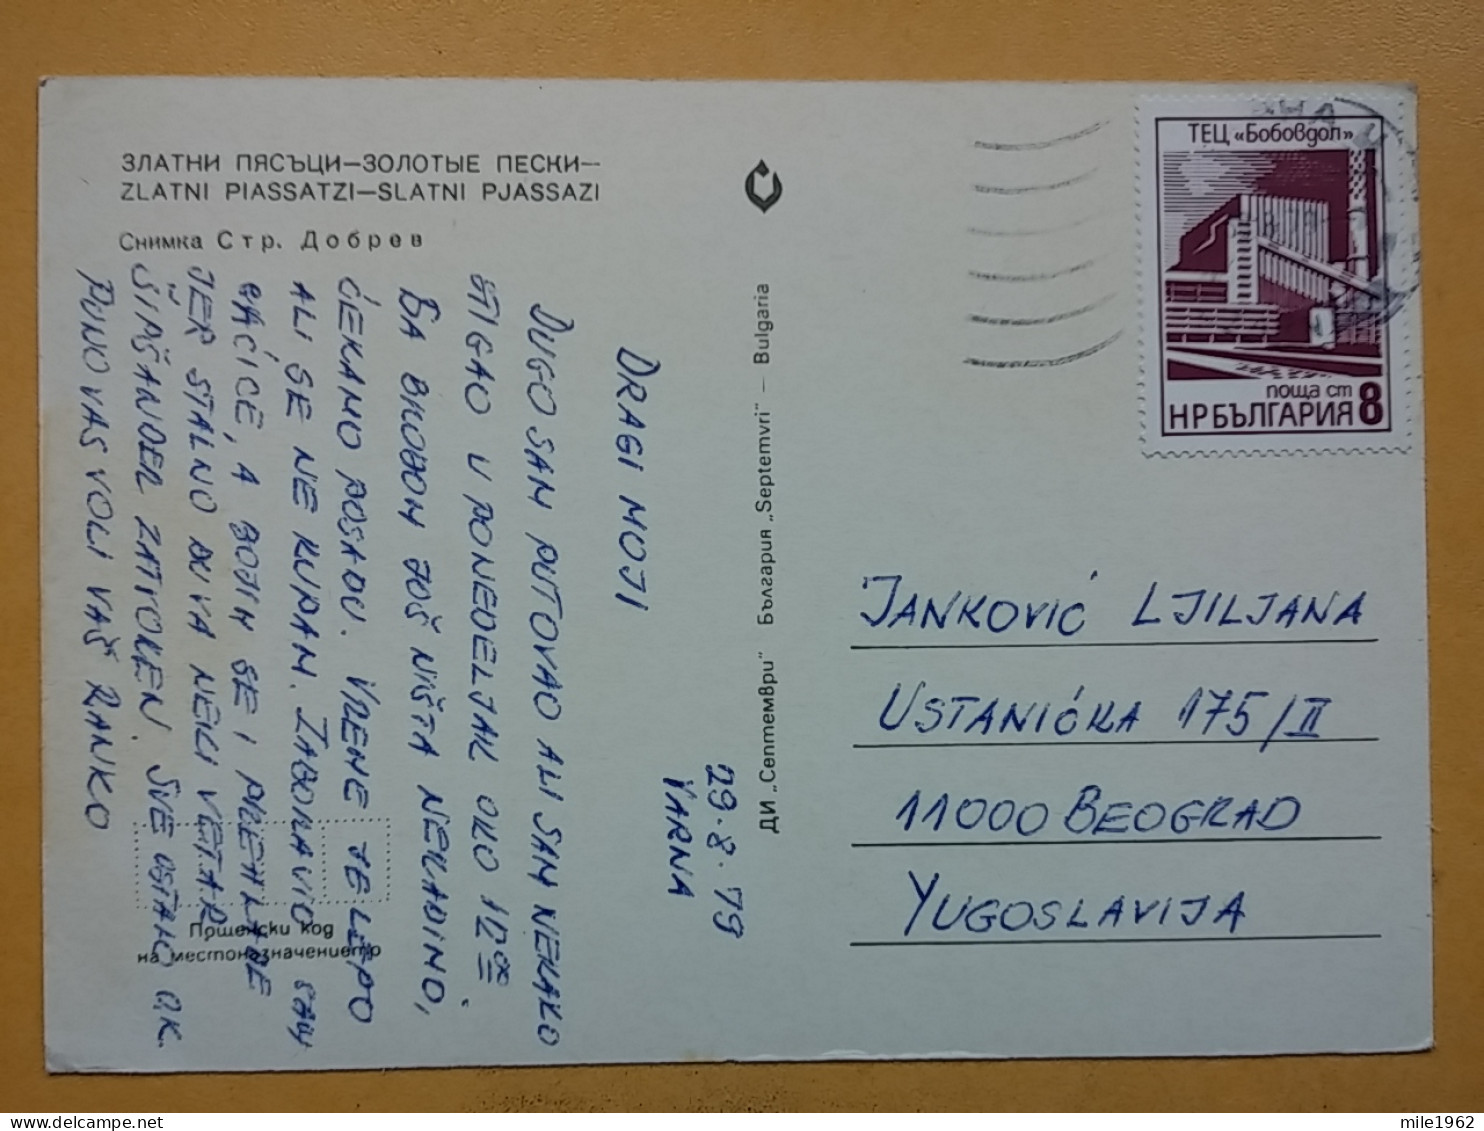 ЗЛАТНИ ПЯСЪЦИ—ЗОЛОТЫЕ ПЕСКИ—
ZLATNI PIASSATZI—SLATNI PJASSAZI
Снимка Стр. Добрев
29.8.79
VARNA
DRAGI MOJI
DUGO SAM PUTOVAO ALI SAM NEKAKO
STIGAO U PONEDELJAK OKO 12°°.
SA BRODOM JOŠ NIŠTA NEVADINO,
ČEKAMO POSADU. VREME JE LEPO
ALI SE NE KUPAM. ZABORAVIO SAM
GAĆICE, A BOJIM SE I PREHLADE
JER STALNO DUVA NEKI VETAR.
ŠIMŠANDER ZATVOREN. SVE OSTALO O.K.
PUNO VAS VOLI VAŠ RANKO
Пощенски код
на местоназначението
ДИ „Септември" България „Septemvri" — Bulgaria
ТЕЦ «Бобовдол»
поща ст
НР БЪЛГАРИЯ 8
JANKOVIĆ LJILJANA
USTANIČKA 175/II
11000 BEOGRAD
YUGOSLAVIJA
mile1962